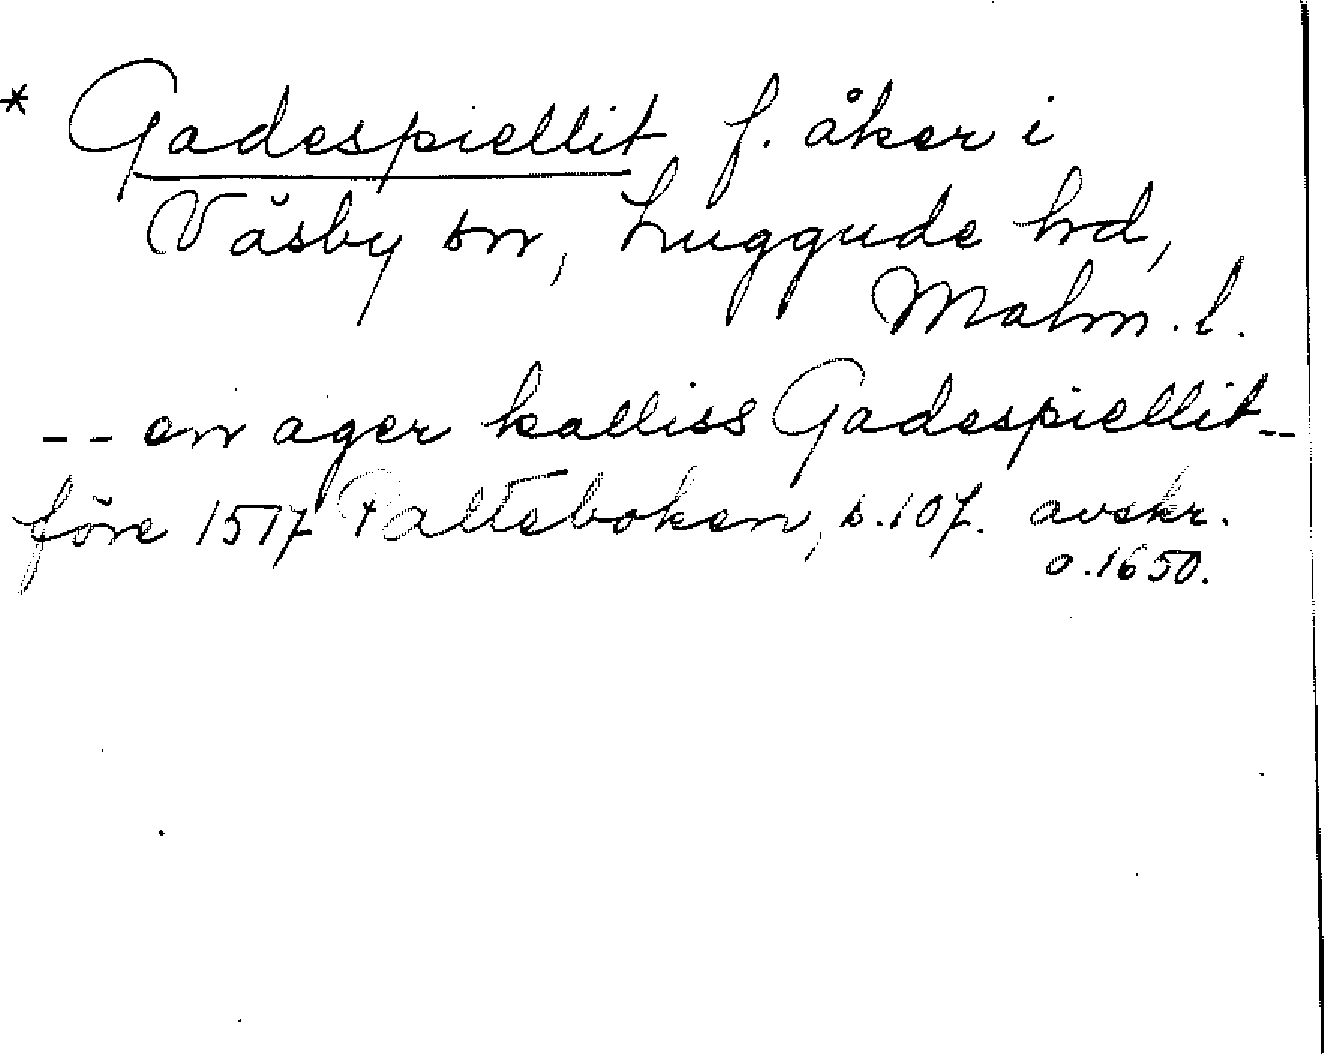 * Gadespiellit, f. åker i
Väsby sn, Luggude hd,
Malm. l.
-- en ager kalliss Gadespiellit--
före 1517 Palteboken, s. 107. avskr.
o. 1650.